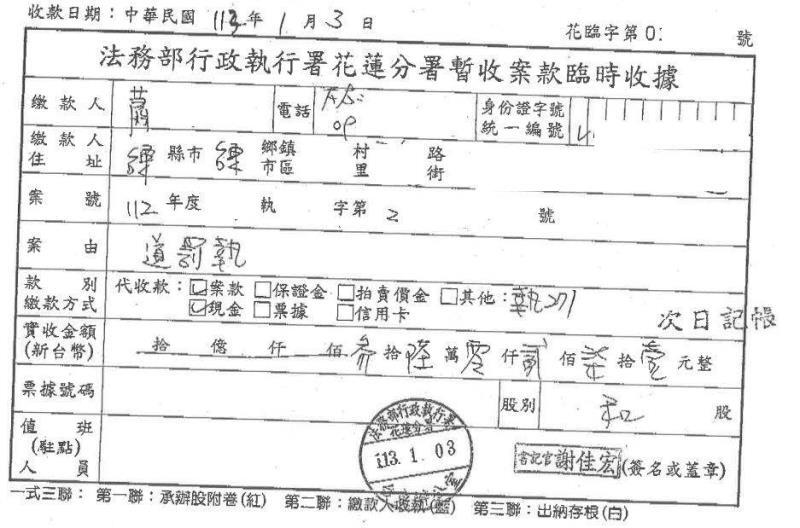 收款日期：中華民國 113 年 1 月 3 日
花臨字第0 號
法務部行政執行署花蓮分署暫收案款臨時收據
繳款人 電話 身份證字號 統一編號
繳款人住址 縣市 鄉鎮市區 村里 路街
案號 112 年度 執 字第 號
案由 道罰執
款別 代收款：☑案款 □保證金 □拍賣價金 □其他：執271
繳款方式 ☑現金 □票據 □信用卡
次日記帳
實收金額(新台幣) 拾 億 仟 佰 參 拾 陸 萬 零 仟 貳 佰 柒 拾 壹 元整
票據號碼 股別 和 股
值班(駐點)人員 書記官 謝佳宏 (簽名或蓋章)
法務部行政執行署
花蓮分署
113. 1. 03
一式三聯： 第一聯：承辦股附卷(紅) 第二聯：繳款人收執(藍) 第三聯：出納存根(白)